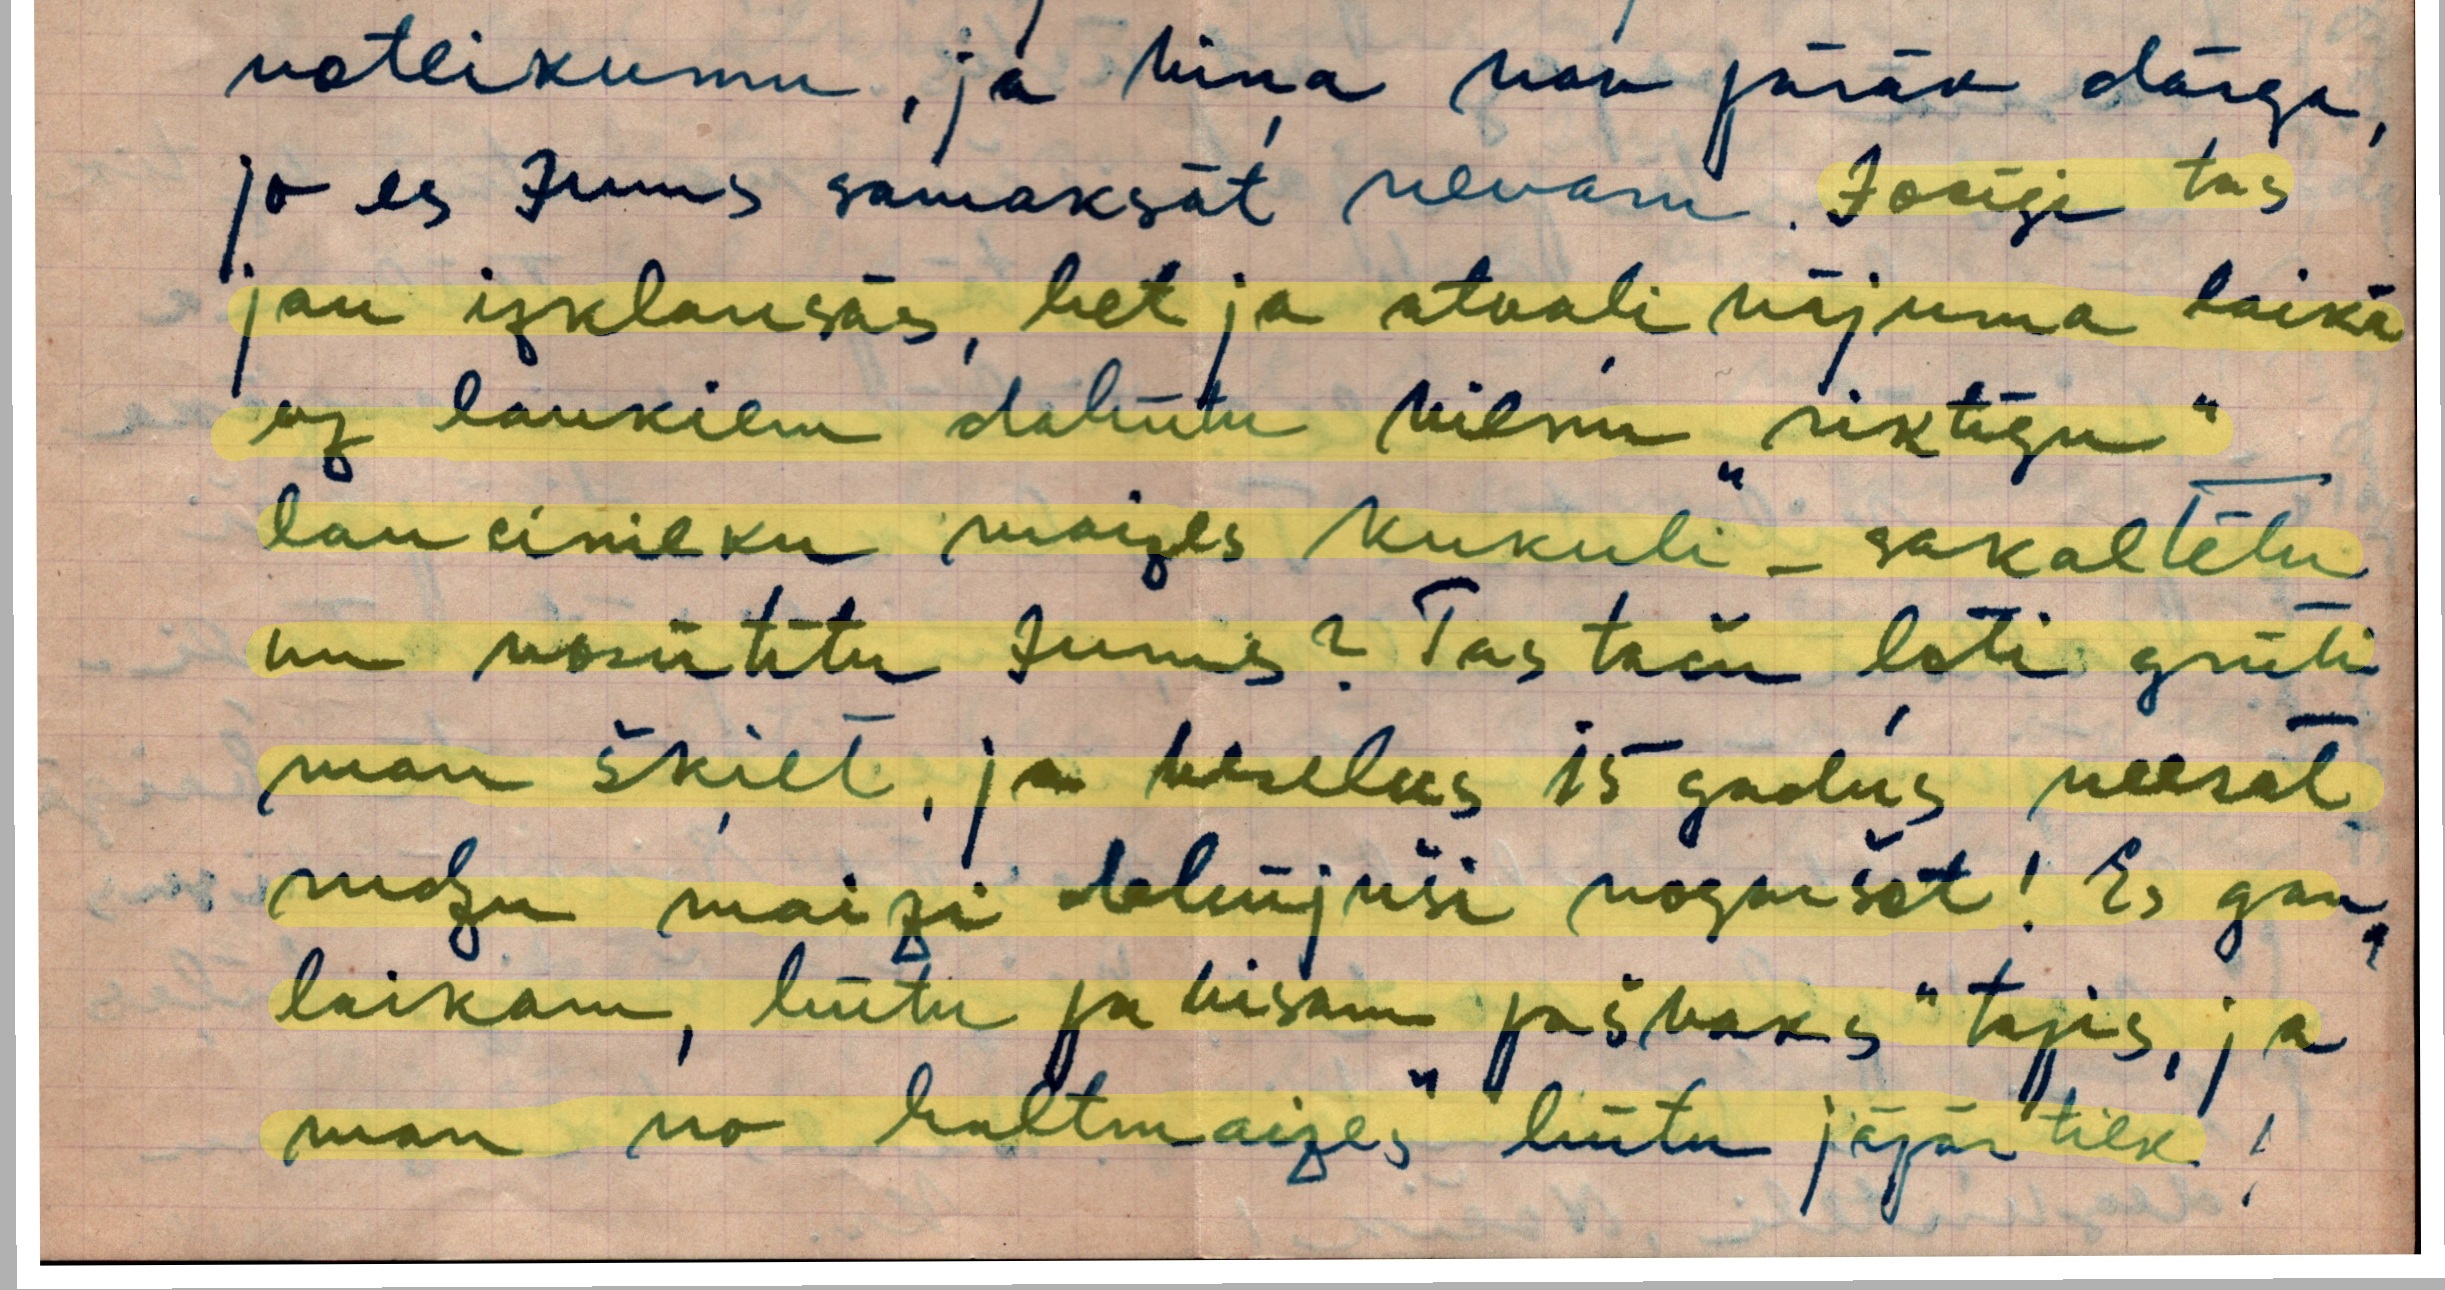 notikumu, ja viņa nav pārāk dārga,
jo es Jums samaksāt nevaru. Jocīgi tas
jau izklausās, bet ja atvaļinājuma laikā
uz laukiem dabūtu vienu "riktīgu"
laucinieku maizes kukuli" – sakaltētu
un nosūtītu Jums? Tas taču ļoti grūti
man šķiet, ja veselus 15 gadus neesat
rudzu maizi dabūjuši nogaršot! Es gan,
laikam, būtu pa visam pašvaks "tapis, ja
man no baltmaizes" būtu jāpārtiek!